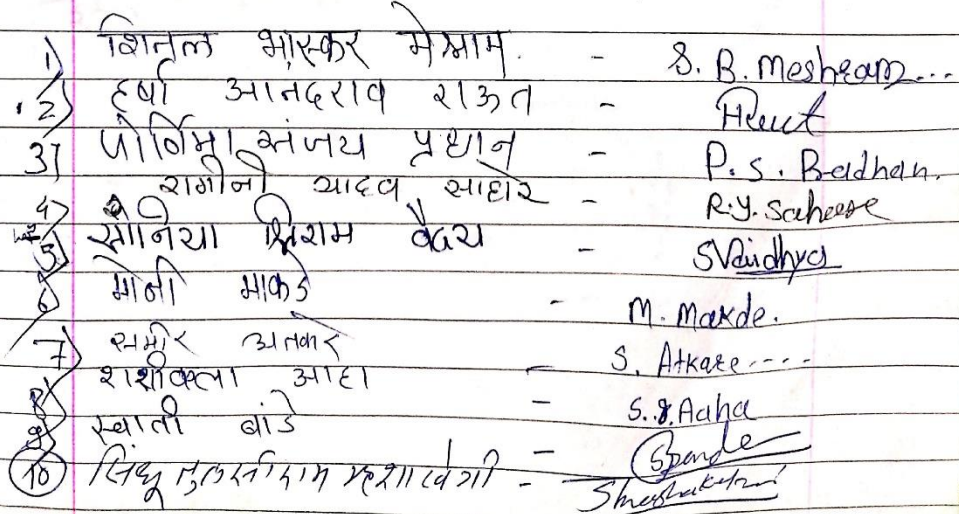 1) शितल भास्कर मेश्राम. - S. B. Meshram...
2) हर्षा आनदराव राऊत - HRaut
3) पोर्णिमा संजय प्रधान - P. S. Pradhan.
4) रागीनी यादव साहारे - R.Y. Sahare
5) सोनिया श्रिराम वैद्य - SVaidhya
6) मोनी माकडे - M. Makde.
7) समीर अतकरे - S. Atkare----
8) शशीकला आहा - S. S. Aaha
9) स्वाती बांडे - SBande
10) सिंधू तुलसीराम -